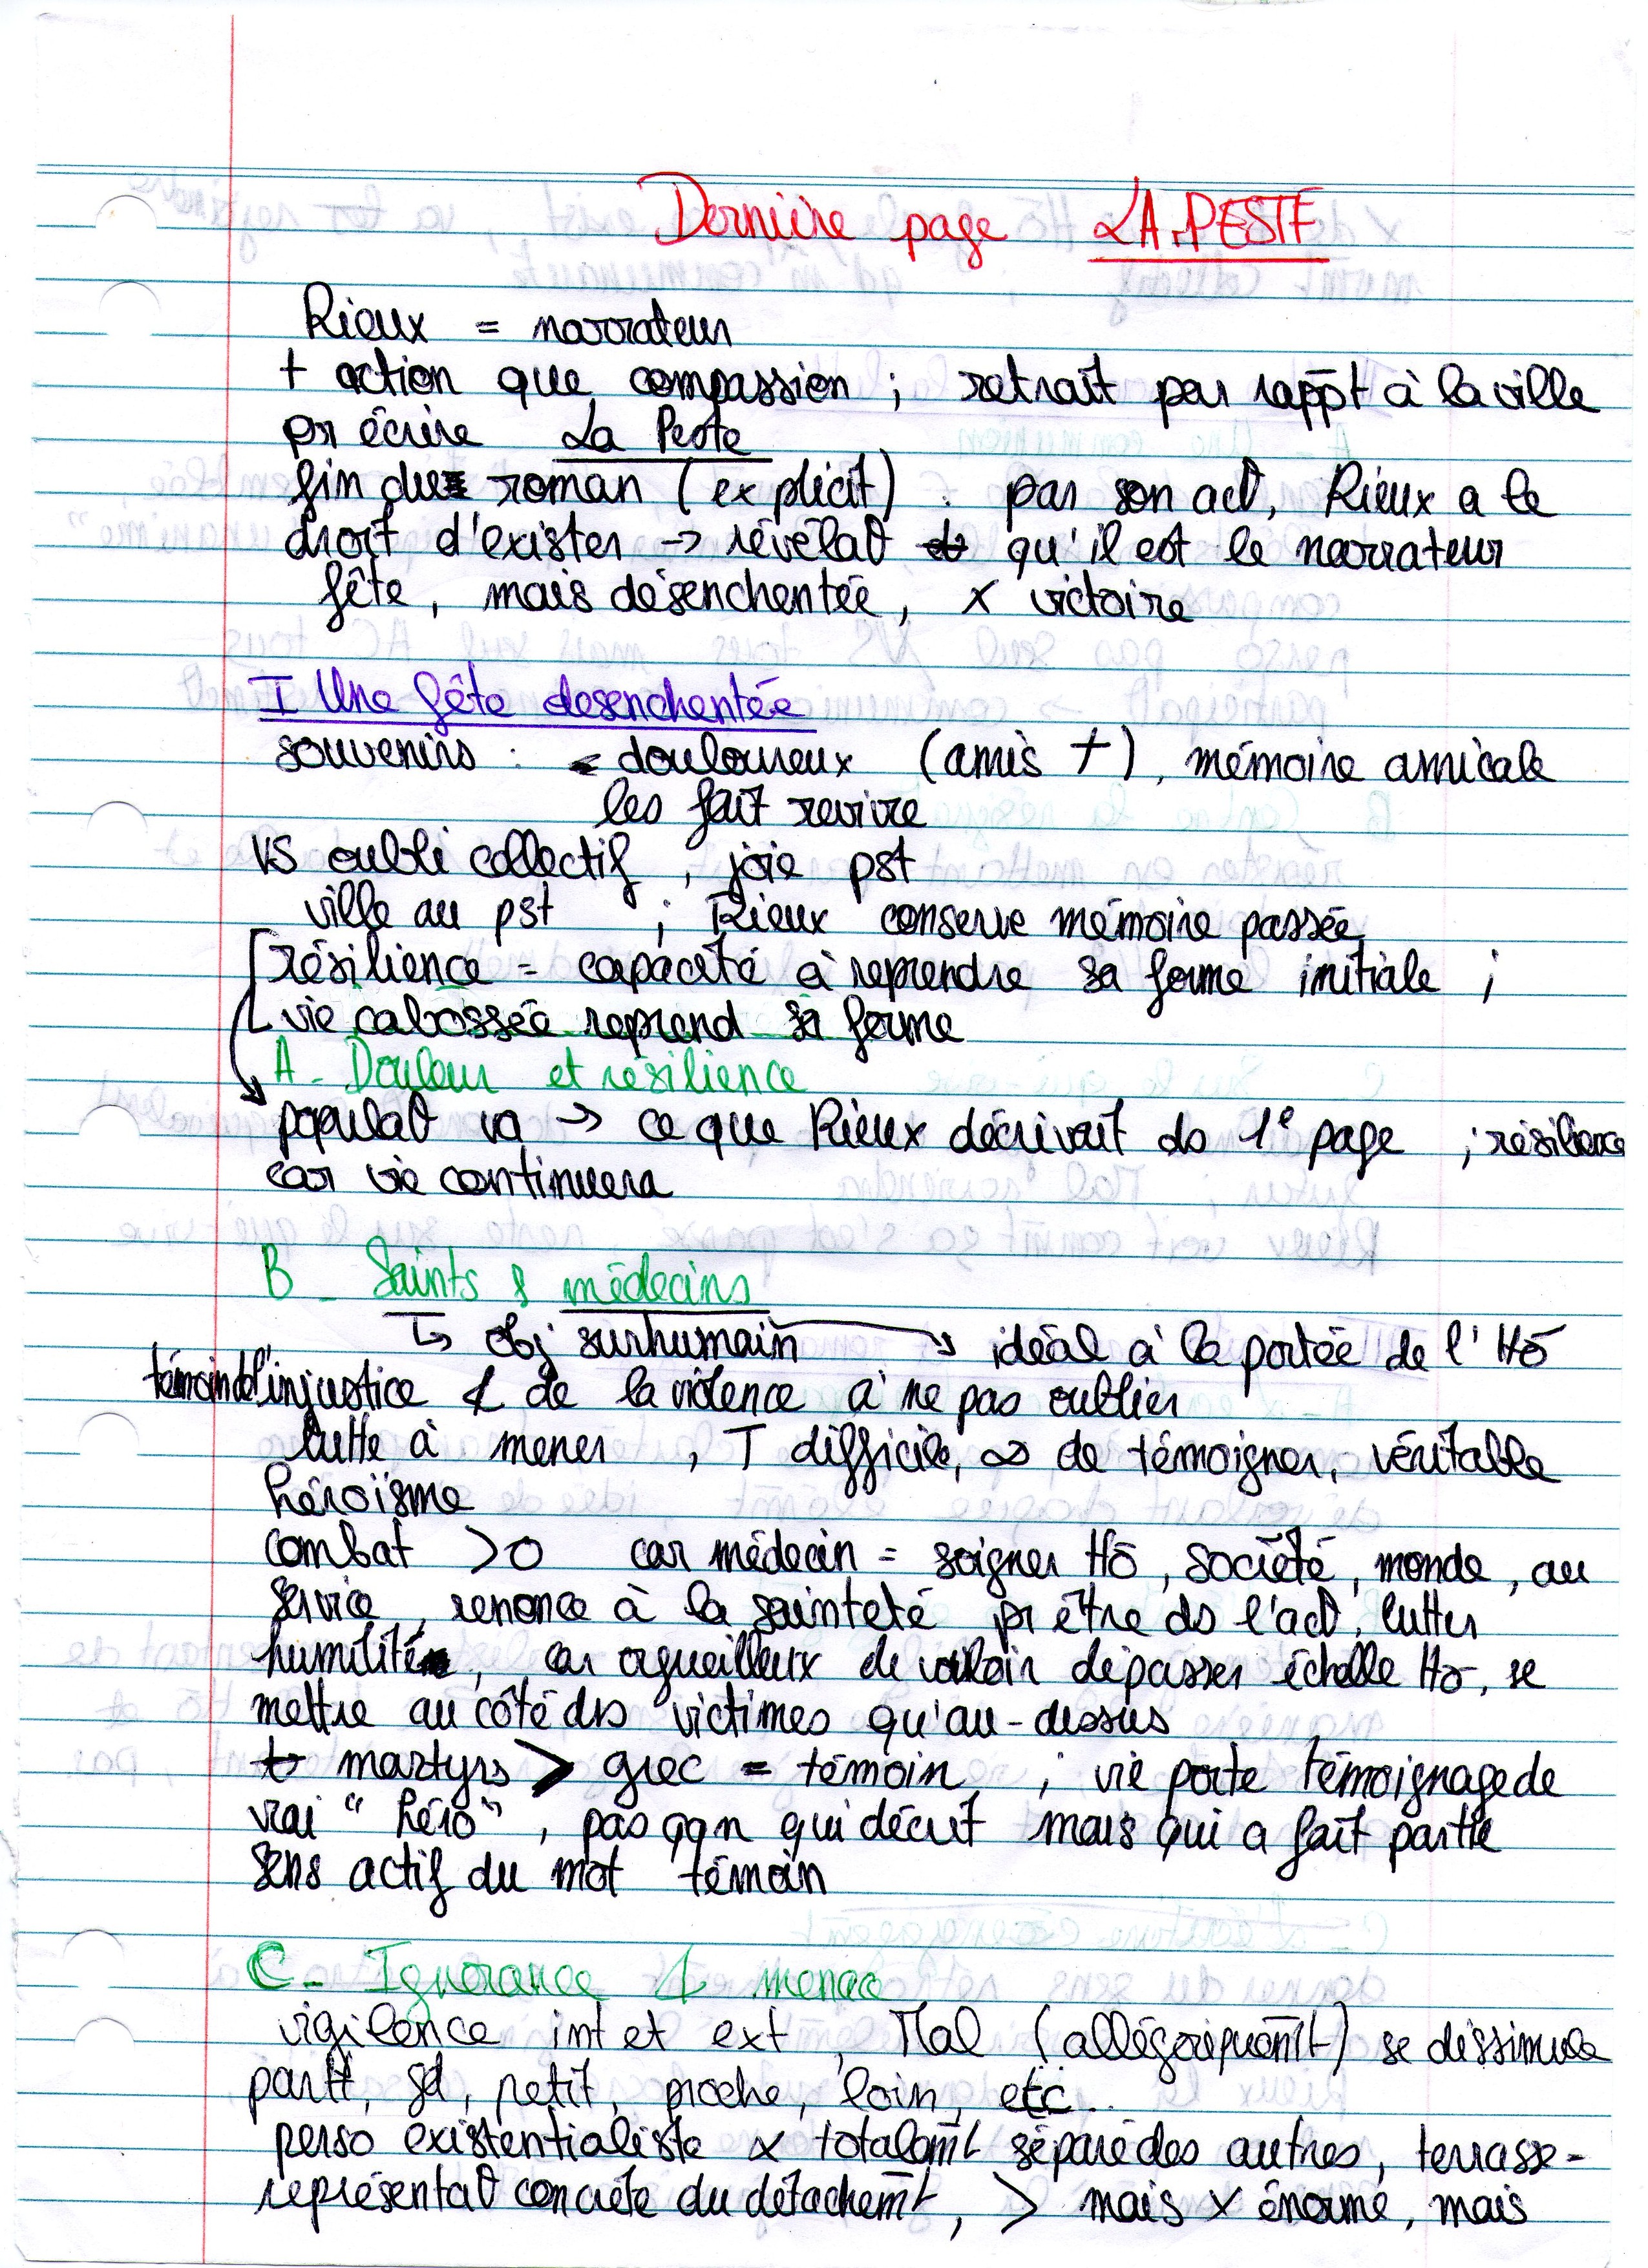 Dernière page LA PESTE
Rieux = narrateur
+ action que compassion ; retrait par rappt à la ville
pr écrire La Peste
fin du roman (explicit) : par son act°, Rieux a le
droit d'exister → révélat° qu'il est le narrateur
fête, mais désenchentée, x victoire
I Une fête desenchentée
souvenirs : douloureux (amis †), mémoire amicale
les fait revivre
VS oubli collectif, joie pst
ville au pst ; Rieux conserve mémoire passée
résilience = capacité à reprendre sa forme initiale ;
vie cabossée reprend sa forme
A - Douleur et résilience
populat° va → ce que Rieux décrivait ds 1e page ; résilience
car vie continuera
B - Saints & médecins
↳ obj surhumain → idéal à la portée de l'Hō
témoin de l'injustice & de la violence à ne pas oublier
lutte à mener, T difficile, ∞ de témoigner, véritable
héroïsme
combat >0 car médecin = soigner Hō, société, monde, au
service, renonce à la sainteté pr être ds l'act°, lutter
humilité, car orgueilleux de vouloir dépasser échelle Hō, se
mettre au côté des victimes qu'au-dessus
martyrs > grec = témoin ; vie porte témoignage de
vrai "héro", pas qqn qui décrit mais qui a fait partie
sens actif du mot témoin
C - Ignorance & menace
vigilence int et ext, Mal (allégoriquemt) se dissimule
partt, gd, petit, proche, loin, etc..
perso existentialiste x totalemt séparé des autres, terrasse -
représentat° concrète du détachemt, > mais x énorme, mais